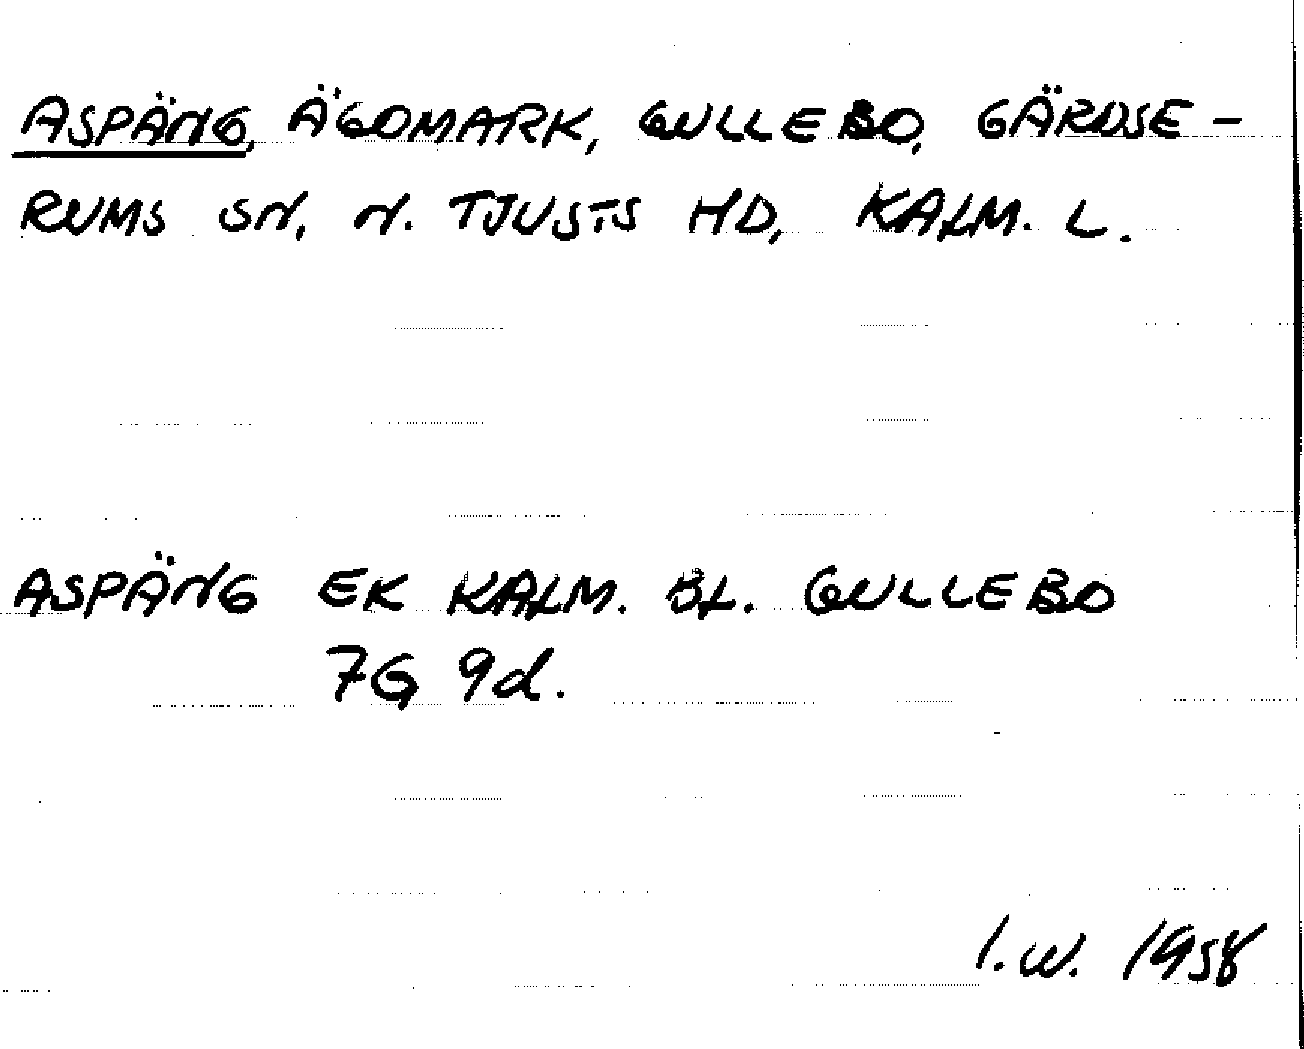 ASPÄNG, ÄGOMARK, GULLEBO, GÄRDSE-
RUMS SN, N. TJUSTS HD, KALM. L.
ASPÄNG EK KALM. BL. GULLEBO
7G 9d.
I.W. 1958